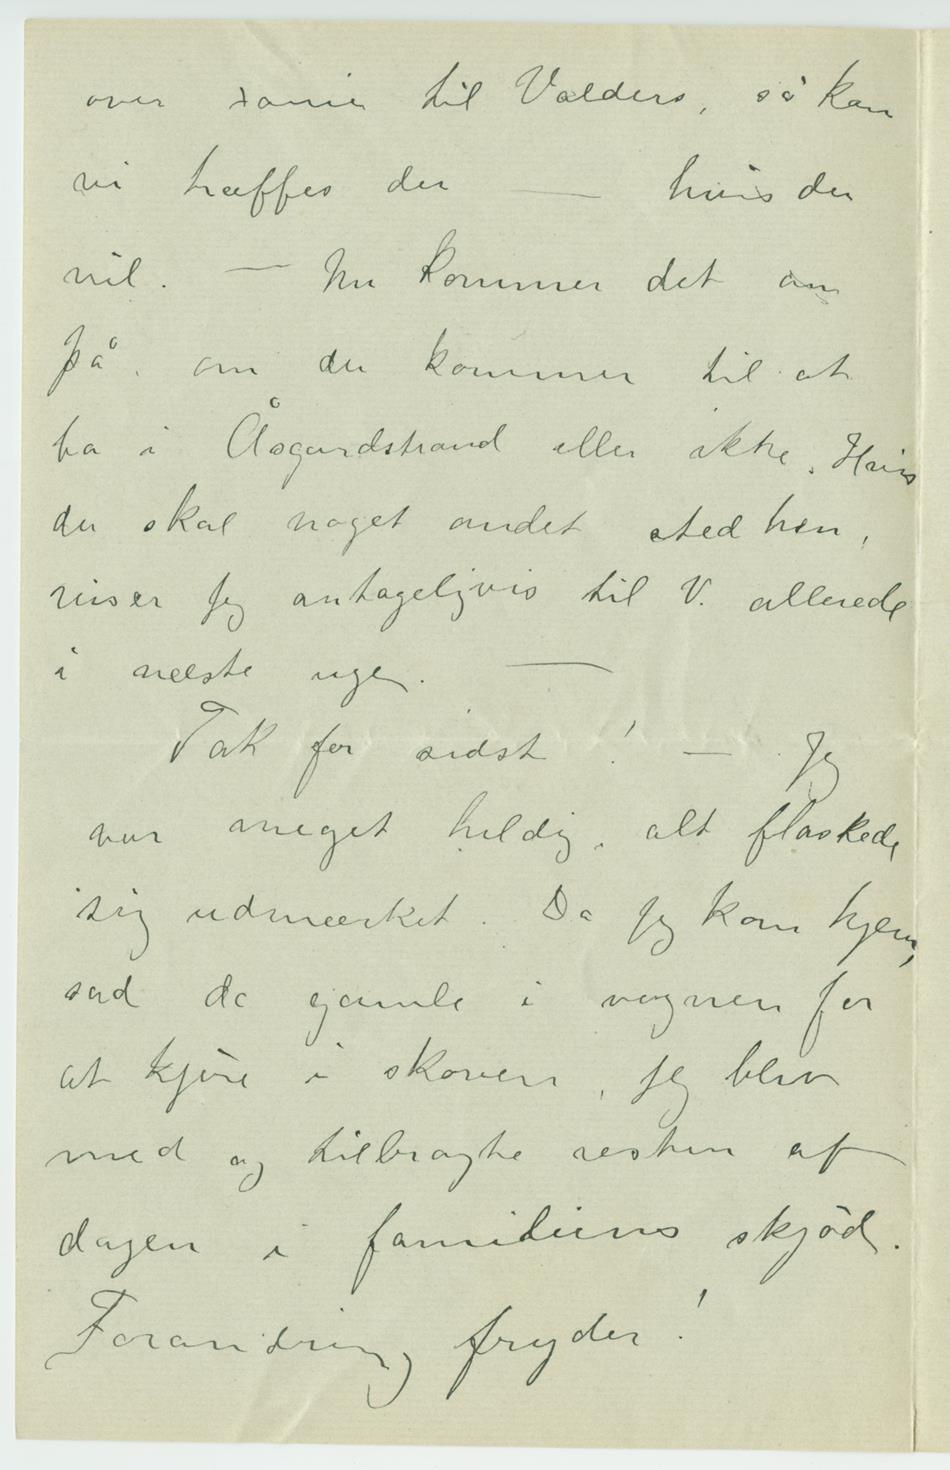 over til Valders, så kan
vi træffes der — hvis du
vil. — Nu kommer det an
på, om du kommer til at
bo i Åsgårdstrand eller ikke. Hvis
du skal noget andet sted hen,
reiser jeg antageligvis til V. allerede
i næste uge. —
Tak for sidst! — Jeg
var meget heldig, alt flaskede
sig udmærket. Da jeg kom hjem,
sad de gamle i vognen for
at kjøre i skoven, jeg blev
med og tilbragte resten af
dagen i familiens skjød.
Forandring fryder!